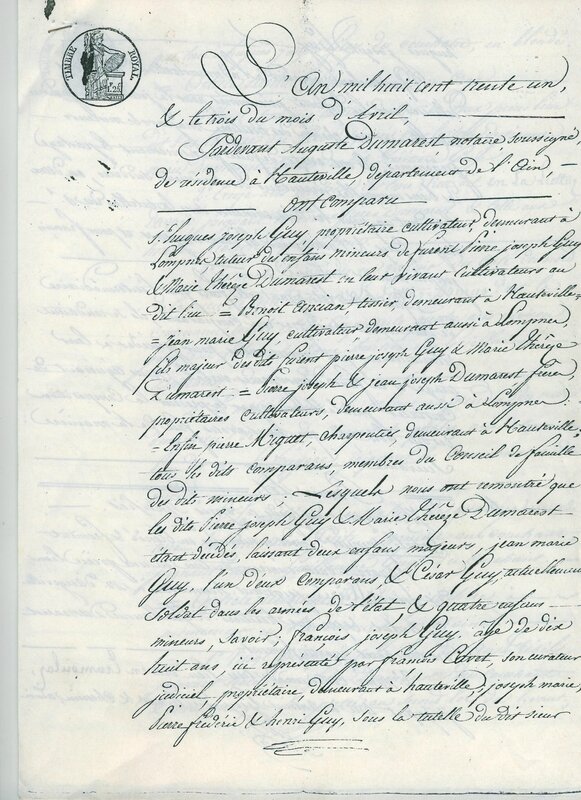 TIMBRE ROYAL
L'An mil huit cent trente un,
& le trois du mois d'Avril,
Pardevant Auguste Dumarest, notaire soussigné,
de résidence à Hauteville, département de l'Ain,
ont comparu
S.r hugues joseph Guy, propriétaire cultivateur, demeurant à
Lompnes tuteur des enfans mineurs de furent Pierre joseph Guy
& Marie Thérèze Dumarest en leur vivant cultivateurs au
dit lieu = Benoit ancian, tissier, demeurant à Hauteville,
= jean marie Guy, cultivateur demeurant aussi à Lompnes,
fils majeur des dits furent pierre joseph Guy & Marie Thérèze
Dumarest = Pierre joseph & jean joseph Dumarest frères,
propriétaires cultivateurs, demeurant aussi à Lompnes
= Enfin pierre Miguet charpentier, demeurant à Hauteville
tous les dits comparans, membres du Conseil de famille
des dits mineurs ; Lesquels nous ont remontré que
les dits Pierre joseph Guy & Marie Thérèze Dumarest
étant décédés, laissant deux enfans majeurs, jean marie
Guy, l'un d'eux comparans, & César Guy, actuellement
soldat dans les armées de l'état, & quatre enfans
mineurs, savoir ; françois joseph Guy, âgé de dix
huit ans, ici représenté par francois Cavet, son curateur
judiciel, propriétaire, demeurant à hauteville, joseph marie,
Pierre frédéric & henri Guy, sous la tutelle du dit sieur